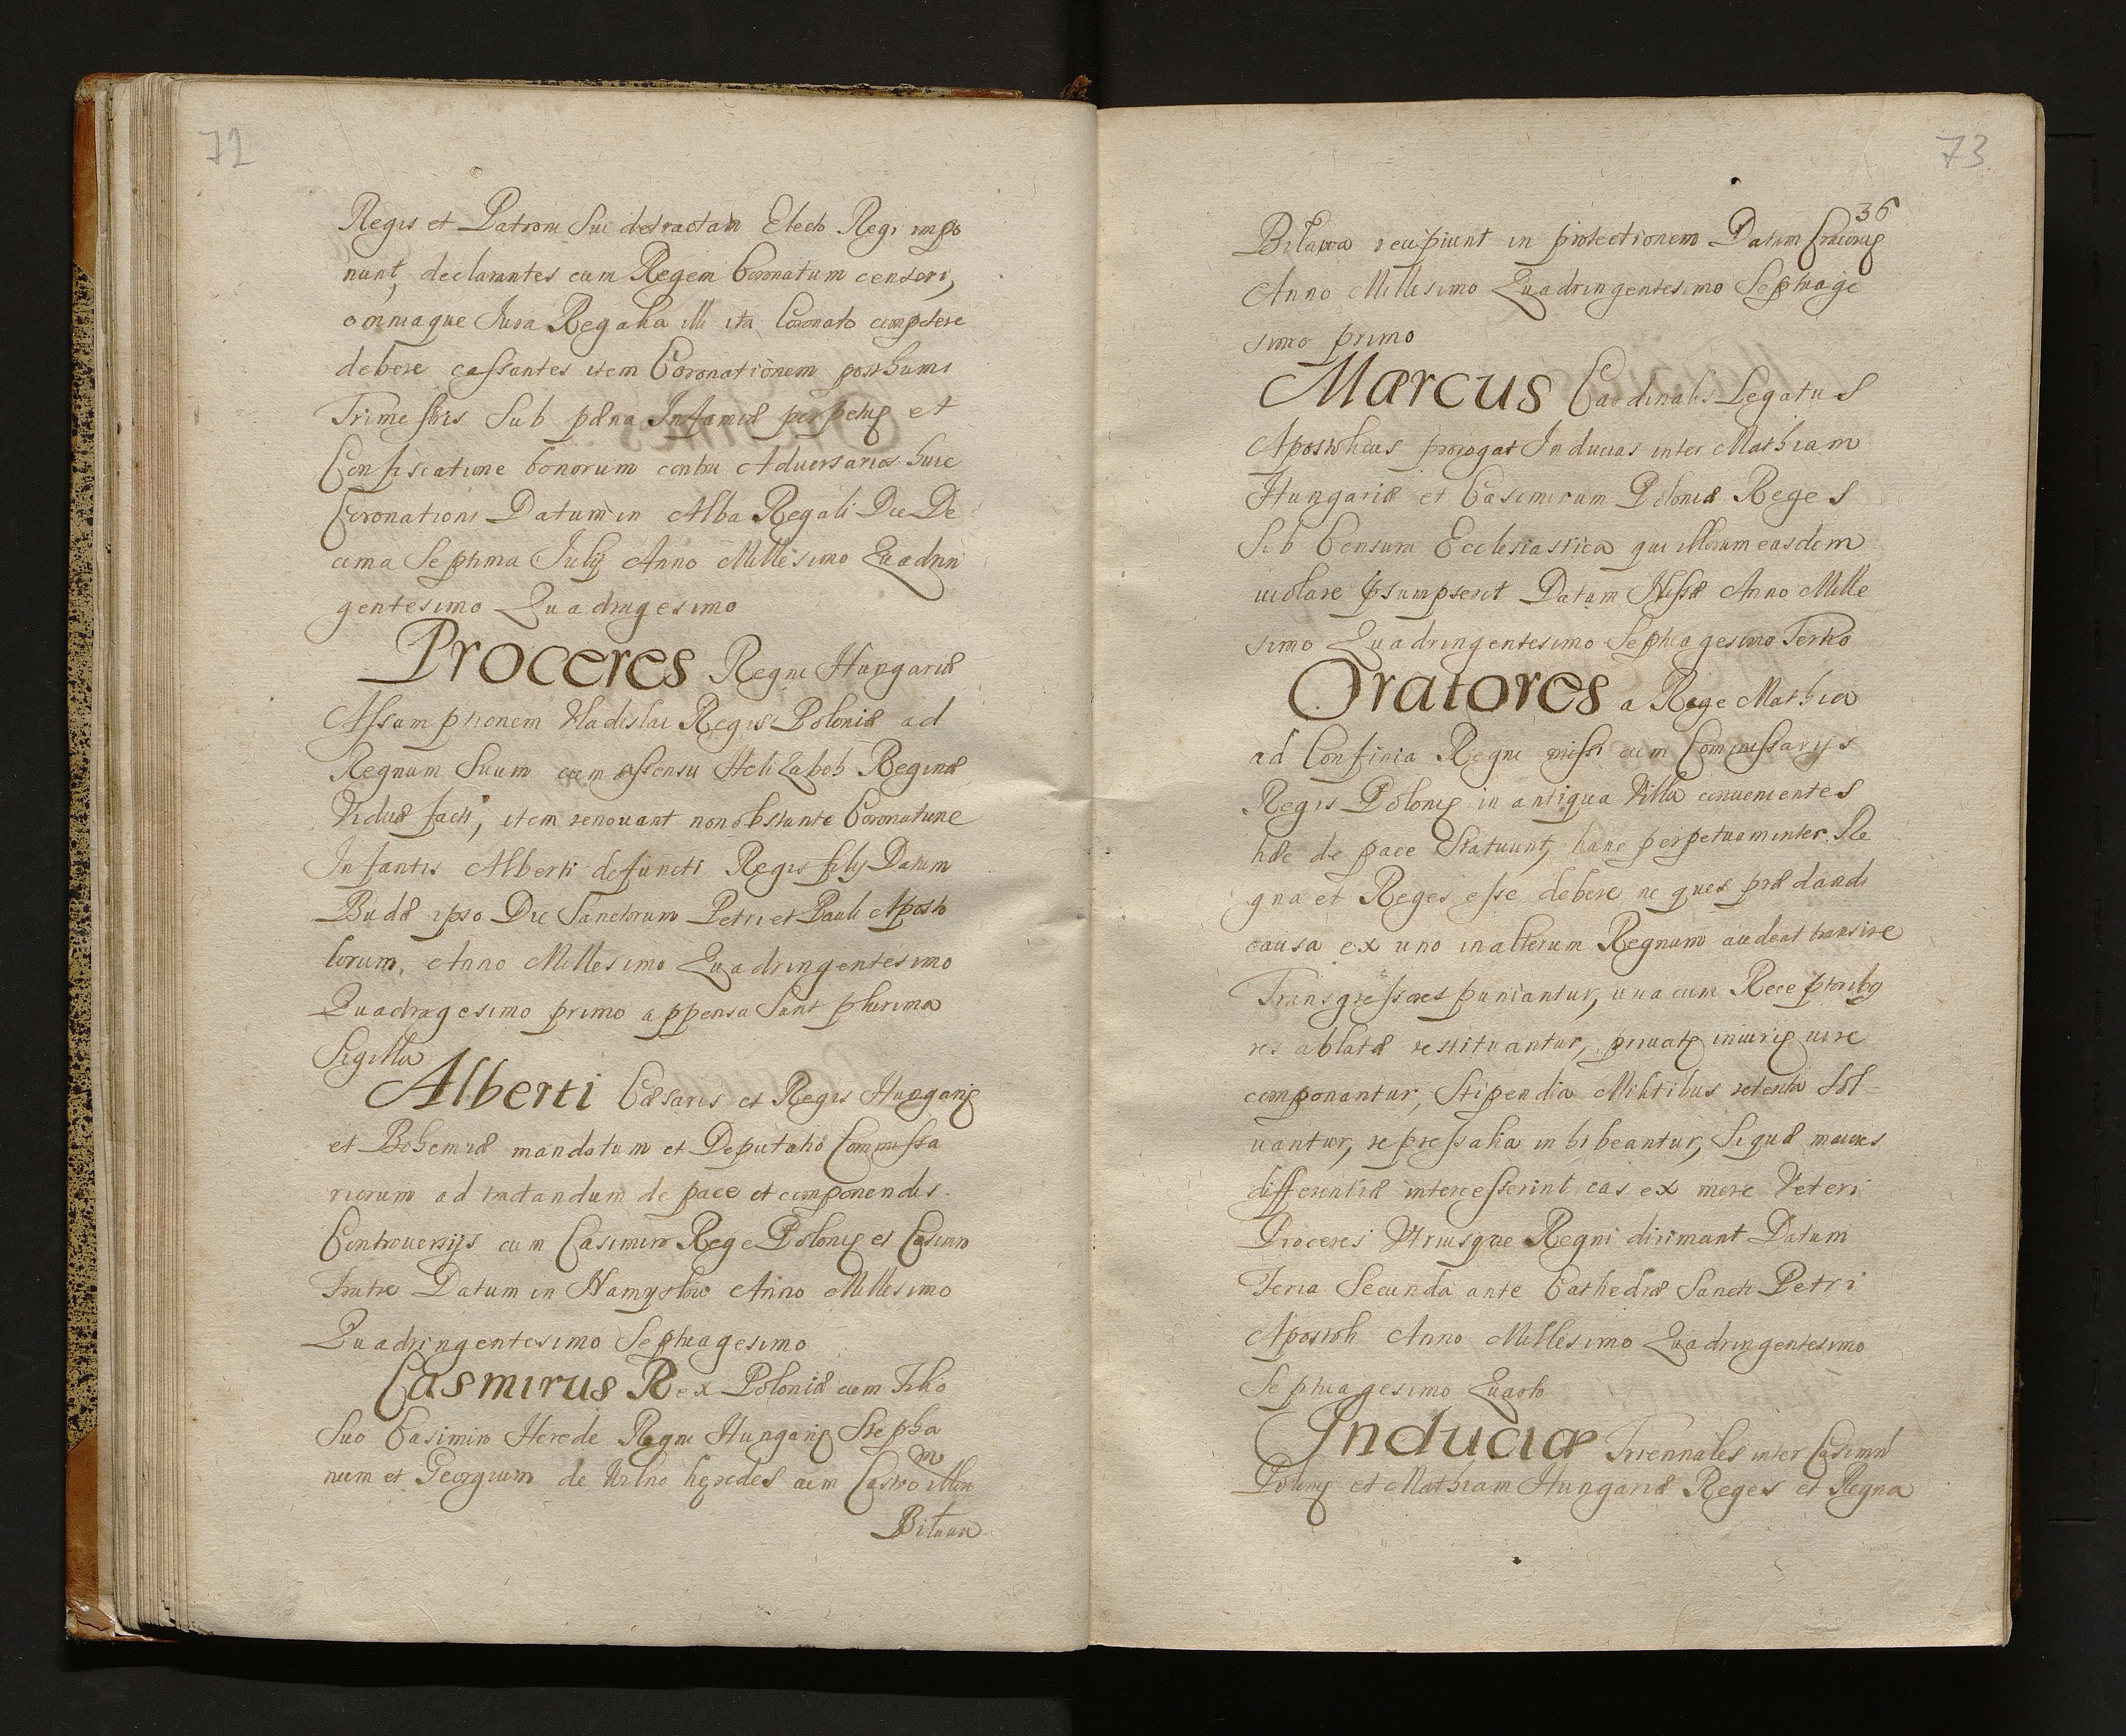 72
Regis et Patroni Sui detractam Electo Regi impo
nunt, declarantes eum Regem Coronatum censeri,
omniaque Jura Regalia illi ita Coronato competere
debere cassantes item Coronationem posthumi
Trimestris Sub pæna Infamiæ perpetuę et
Confiscatione bonorum contra Adversarios huic
Coronationi Datum in Alba Regali Die De
cima Septima Julij Anno Millesimo Quadrin
gentesimo Quadragesimo
Proceres Regni Hungariæ
Assumptionem Vladislai Regis Poloniæ ad
Regnum Suum cum assensu Helizabeh Reginæ
Viduæ facti, item renouant non obstante Coronatione
Infantis Alberti defuncti Regis filij Datum
Budæ ipso Die Sanctorum Petri et Pauli Aposto
lorum, Anno Millesimo Quadringentesimo
Quadragesimo primo appensa Sunt plurima
Sigilla
Alberti Cæsaris et Regis Hungarię
et Bohemiæ mandatum et Deputatio Commissa
riorum ad tractandum de pace et componendis
Controuersijs cum Casimiro Rege Polonię et
Fratre Datum in Namyslow Anno Millesimo
Quadringentesimo Septuagesimo
Casmirus Rex Poloniæ cum Filio
Suo Casimiro Herede Regni Hungarię Stepha
num et Georgium de heredes cum Castro illoru
m
Bitawa
73
36
Bitawa recipiunt in protectionem Datum Cracouię
Anno Millesimo Quadringentesimo Septuage
simo primo
Marcus Cardinalis Legatus
Apostolicus prorogat Inducias inter Mathiam
Hungariæ et Casimirum Poloniæ Reges
Sub Censura Ecclesiastica qui illorum easdem
uiolare psumpserit Datum Nissæ Anno Mille
simo Quadringentesimo Septuagesimo Tertio
Oratores a Rege Mathia
ad Confinia Regni missi cum Commissarijs
Regis Polonię in antiqua Villa conuenientes
hæc de pace Statuunt, hanc perpetuam inter Re
gna et Reges esse debere ne ques prædandi
causa ex uno in alterum Regnum audeat transire
Transgressores puniantur, una cum Receptoribq
res ablatæ restituantur, priuatę iniurię iure
componantur, Stipendia Militibus retenta Sol
uantur, repressalia inhibeantur, Siquæ maiores
differentiæ intercesserint eas ex more Veteri
Proceres Vtriusque Regni dirimant Datum
Feria Secunda ante Cathedræ Sancti Petri
Apostoli Anno Millesimo Quadringentesimo
Septuagesimo Quarto
Induciæ Triennales inter Casimirū
Polonię et Mathiam Hungariæ Reges et Regna